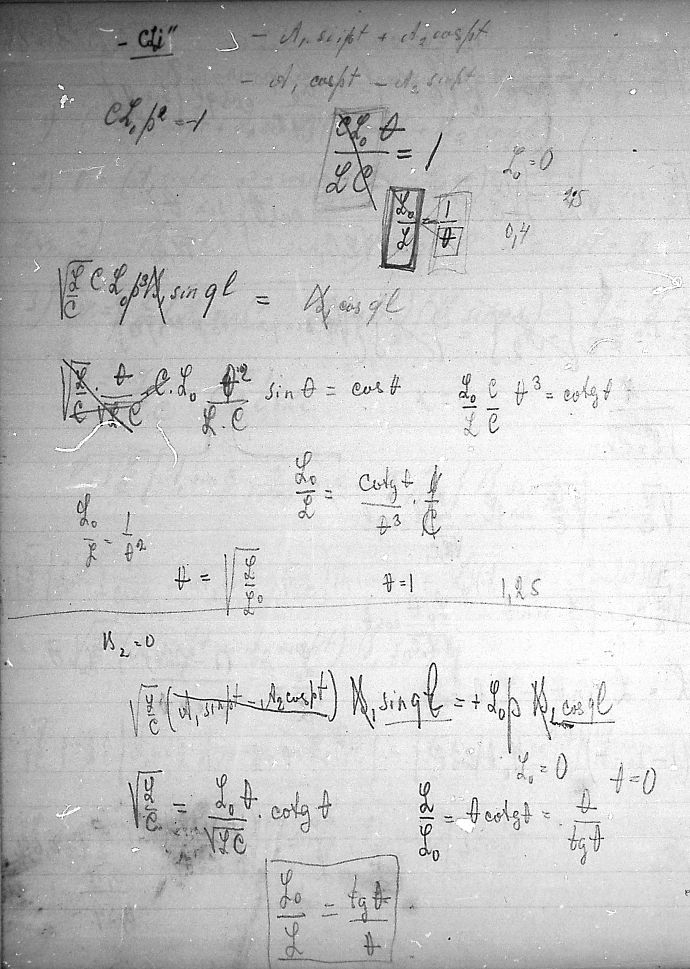 - CLi" - A₁ sin pt + A₂ cos pt
- A₁ cos pt - A₂ sin pt
CL₀p² = -1
CL₀ϑ / LC = 1
L₀ = 0
L₀/L = 1/ϑ
0,4
√(L/C) C L₀p³ B₁ sin ql = B₁ cos ql
√(L/C) · ϑ/√(LC) · C · L₀ ϑ²/(L·C) sin ϑ = cos ϑ L₀/L C/C ϑ³ = cotg ϑ
L₀/L = cotg ϑ/ϑ³ · 1/C
L₀/L = 1/ϑ²
ϑ = √(L/L₀) ϑ = 1 1,25
B₂ = 0
√(L/C) (A₁ sin pt - A₂ cos pt) B₁ sin ql = + L₀p B₁ cos ql
L₀ = 0 ϑ = 0
√(L/C) = L₀ϑ/√(LC) · cotg ϑ L/L₀ = ϑ cotg ϑ = ϑ/tg ϑ
L₀/L = tg ϑ/ϑ